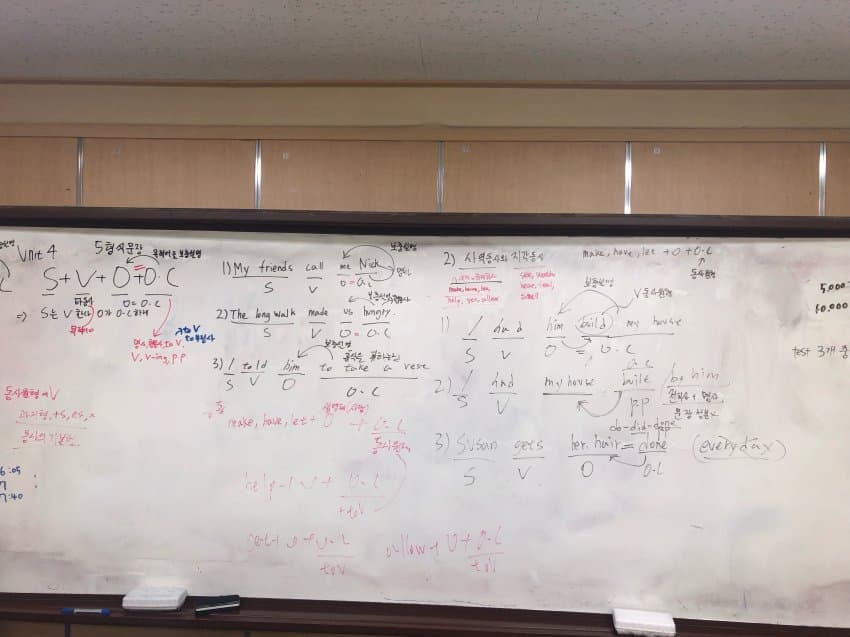 Unit 4
5형식문장
S+V+O+O·C
O=O·C
⇒ S는 V 한다 O가 O·C하게
목적어
명사, 형용사, to V,
V, v-ing, p.p
동사원형에 V
과거형, +s, es, x
동사의 기본형
7:40
1) My friends call me Nick
S V O = O.C
보충설명
명사
2) The long walk made us hungry.
S V O = O.C
3) I told him to take a rest
S V O O.C
보충설명
make, have, let + O + O.C
동사원형
help + O + O.C
+toV
get + O + O.C
toV
allow + O + O.C
toV
2) 사역동사와 지각동사
make, have, let
help, get, allow
see, watch
hear, feel,
smell
make, have, let + O + O·C
동사원형
보충설명
V 동사원형
1) I had him build my house
S V O = O.C
2) I had my house built by him
S V O.C
p.p
전치사 + 명사
do-did-done
3) Susan gets her hair = done (everyday)
S V O O.C
5,000
10,000
test 3개 중